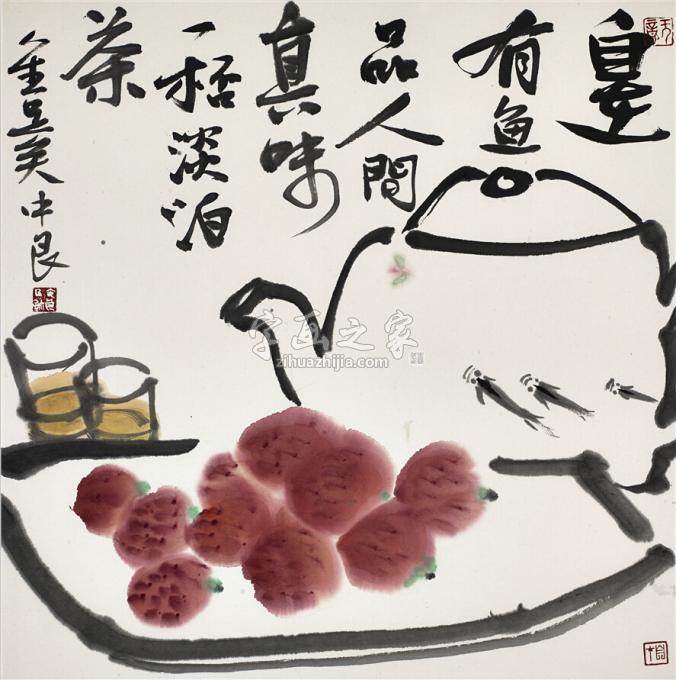 有鱼
品人間
真味
一杯淡泊
茶
吴中良
字画之家
zihuazhijia.com